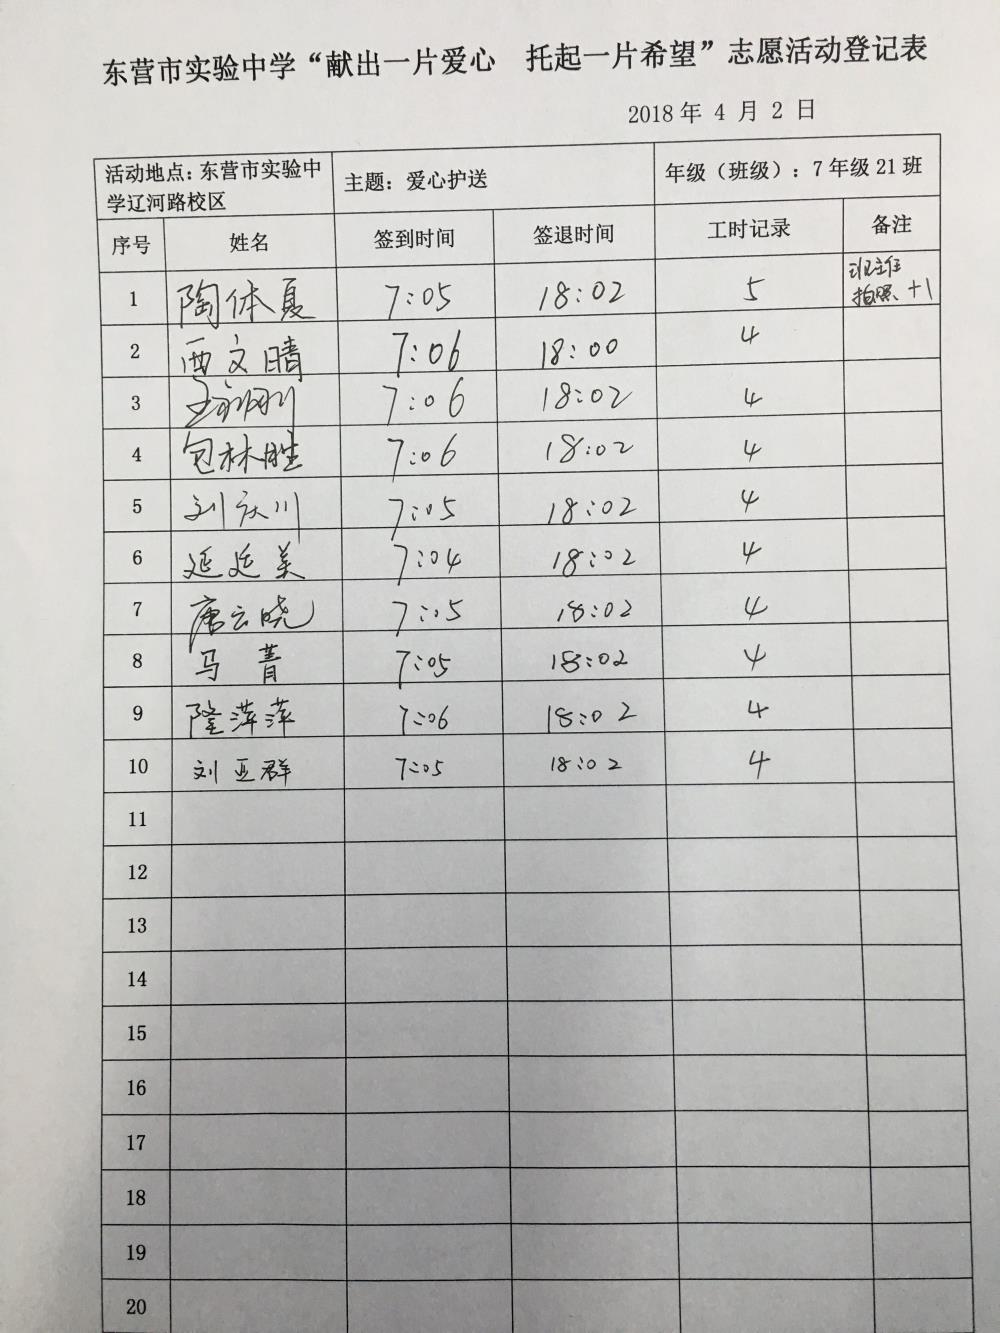 东营市实验中学“献出一片爱心 托起一片希望”志愿活动登记表
2018 年 4 月 2 日
活动地点：东营市实验中
学辽河路校区
主题：爱心护送
年级（班级）：7 年级 21 班
序号 姓名 签到时间 签退时间 工时记录 备注
1 陶体夏 7:05 18:02 5 班主任
拍照 +1
2 西文晴 7:06 18:00 4
3 7:06 18:02 4
4 包林胜 7:06 18:02 4
5 刘庆川 7:05 18:02 4
6 延廷美 7:04 18:02 4
7 唐云晓 7:05 18:02 4
8 马菁 7:05 18:02 4
9 隆萍萍 7:06 18:02 4
10 刘亚群 7:05 18:02 4
11
12
13
14
15
16
17
18
19
20